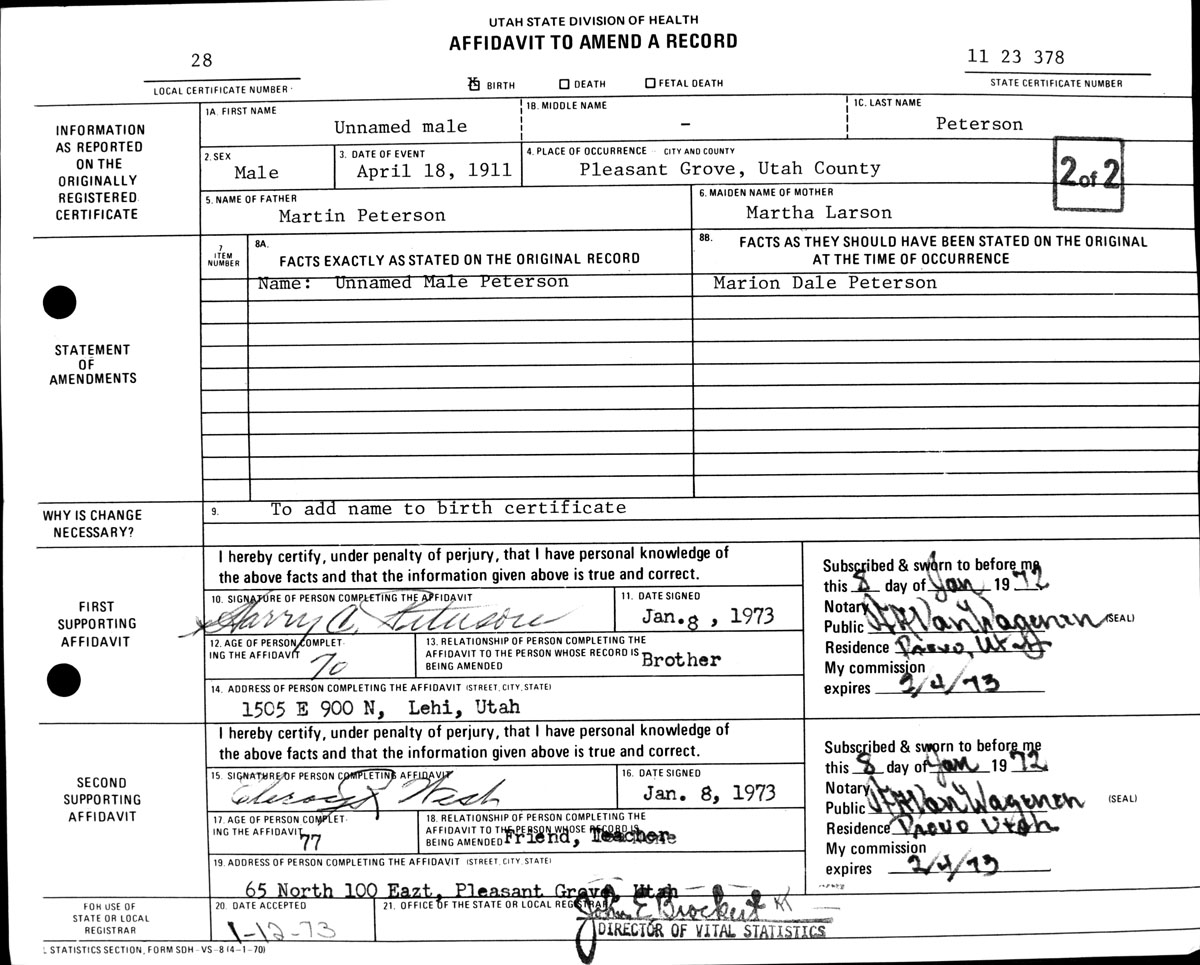 UTAH STATE DIVISION OF HEALTH
AFFIDAVIT TO AMEND A RECORD
28
LOCAL CERTIFICATE NUMBER
☒ BIRTH ☐ DEATH ☐ FETAL DEATH
11 23 378
STATE CERTIFICATE NUMBER
INFORMATION
AS REPORTED
ON THE
ORIGINALLY
REGISTERED
CERTIFICATE
1A. FIRST NAME
Unnamed male
1B. MIDDLE NAME
-
1C. LAST NAME
Peterson
2. SEX
Male
3. DATE OF EVENT
April 18, 1911
4. PLACE OF OCCURRENCE - CITY AND COUNTY
Pleasant Grove, Utah County
2 of 2
5. NAME OF FATHER
Martin Peterson
6. MAIDEN NAME OF MOTHER
Martha Larson
STATEMENT
OF
AMENDMENTS
7
ITEM
NUMBER
8A.
FACTS EXACTLY AS STATED ON THE ORIGINAL RECORD
8B.
FACTS AS THEY SHOULD HAVE BEEN STATED ON THE ORIGINAL
AT THE TIME OF OCCURRENCE
Name: Unnamed Male Peterson
Marion Dale Peterson
WHY IS CHANGE
NECESSARY?
9. To add name to birth certificate
FIRST
SUPPORTING
AFFIDAVIT
I hereby certify, under penalty of perjury, that I have personal knowledge of
the above facts and that the information given above is true and correct.
10. SIGNATURE OF PERSON COMPLETING THE AFFIDAVIT
x Harry A. Peterson
11. DATE SIGNED
Jan. 8, 1973
12. AGE OF PERSON COMPLET-
ING THE AFFIDAVIT
70
13. RELATIONSHIP OF PERSON COMPLETING THE
AFFIDAVIT TO THE PERSON WHOSE RECORD IS
BEING AMENDED Brother
14. ADDRESS OF PERSON COMPLETING THE AFFIDAVIT (STREET, CITY, STATE)
1505 E 900 N, Lehi, Utah
Subscribed & sworn to before me
this 8 day of Jan 1972
Notary
Public Van Wagenen (SEAL)
Residence Provo, Utah
My commission
expires 2/4/73
SECOND
SUPPORTING
AFFIDAVIT
I hereby certify, under penalty of perjury, that I have personal knowledge of
the above facts and that the information given above is true and correct.
15. SIGNATURE OF PERSON COMPLETING AFFIDAVIT
16. DATE SIGNED
Jan. 8, 1973
17. AGE OF PERSON COMPLET-
ING THE AFFIDAVIT
77
18. RELATIONSHIP OF PERSON COMPLETING THE
AFFIDAVIT TO THE PERSON WHOSE RECORD IS
BEING AMENDED Friend, Teacher
19. ADDRESS OF PERSON COMPLETING THE AFFIDAVIT (STREET, CITY, STATE)
65 North 100 Eazt, Pleasant Grove Utah
Subscribed & sworn to before me
this 8 day of Jan 1972
Notary
Public Van Wagenen (SEAL)
Residence Provo Utah
My commission
expires 2/4/73
FOR USE OF
STATE OR LOCAL
REGISTRAR
20. DATE ACCEPTED
1-12-73
21. OFFICE OF THE STATE OR LOCAL REGISTRAR
John E Brockert K
DIRECTOR OF VITAL STATISTICS
STATISTICS SECTION, FORM SDH - VS - 8 (4-1-70)